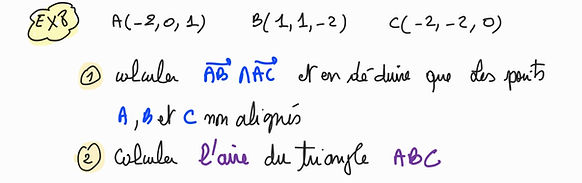 EX8 A(-2,0,1) B(1,1,-2) C(-2,-2,0)
① calculer AB ∧ AC et en déduire que les points
A, B et C non alignés
② Calculer l'aire du triangle ABC